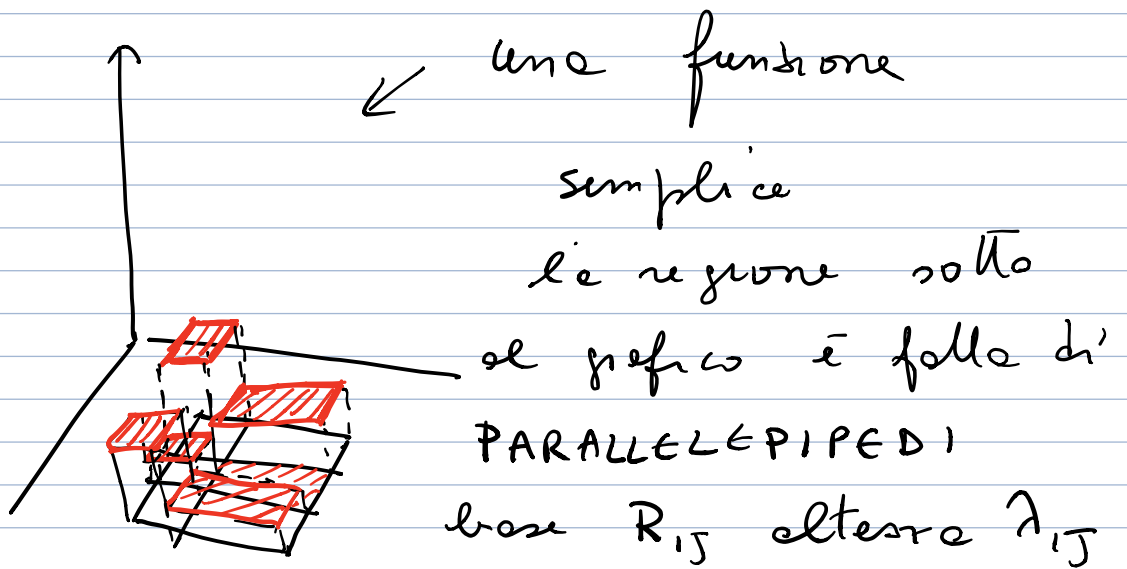 una funzione
semplice
la regione sotto
al grafico è fatta di
PARALLELEPIPEDI
base R_{IJ} altezza λ_{IJ}